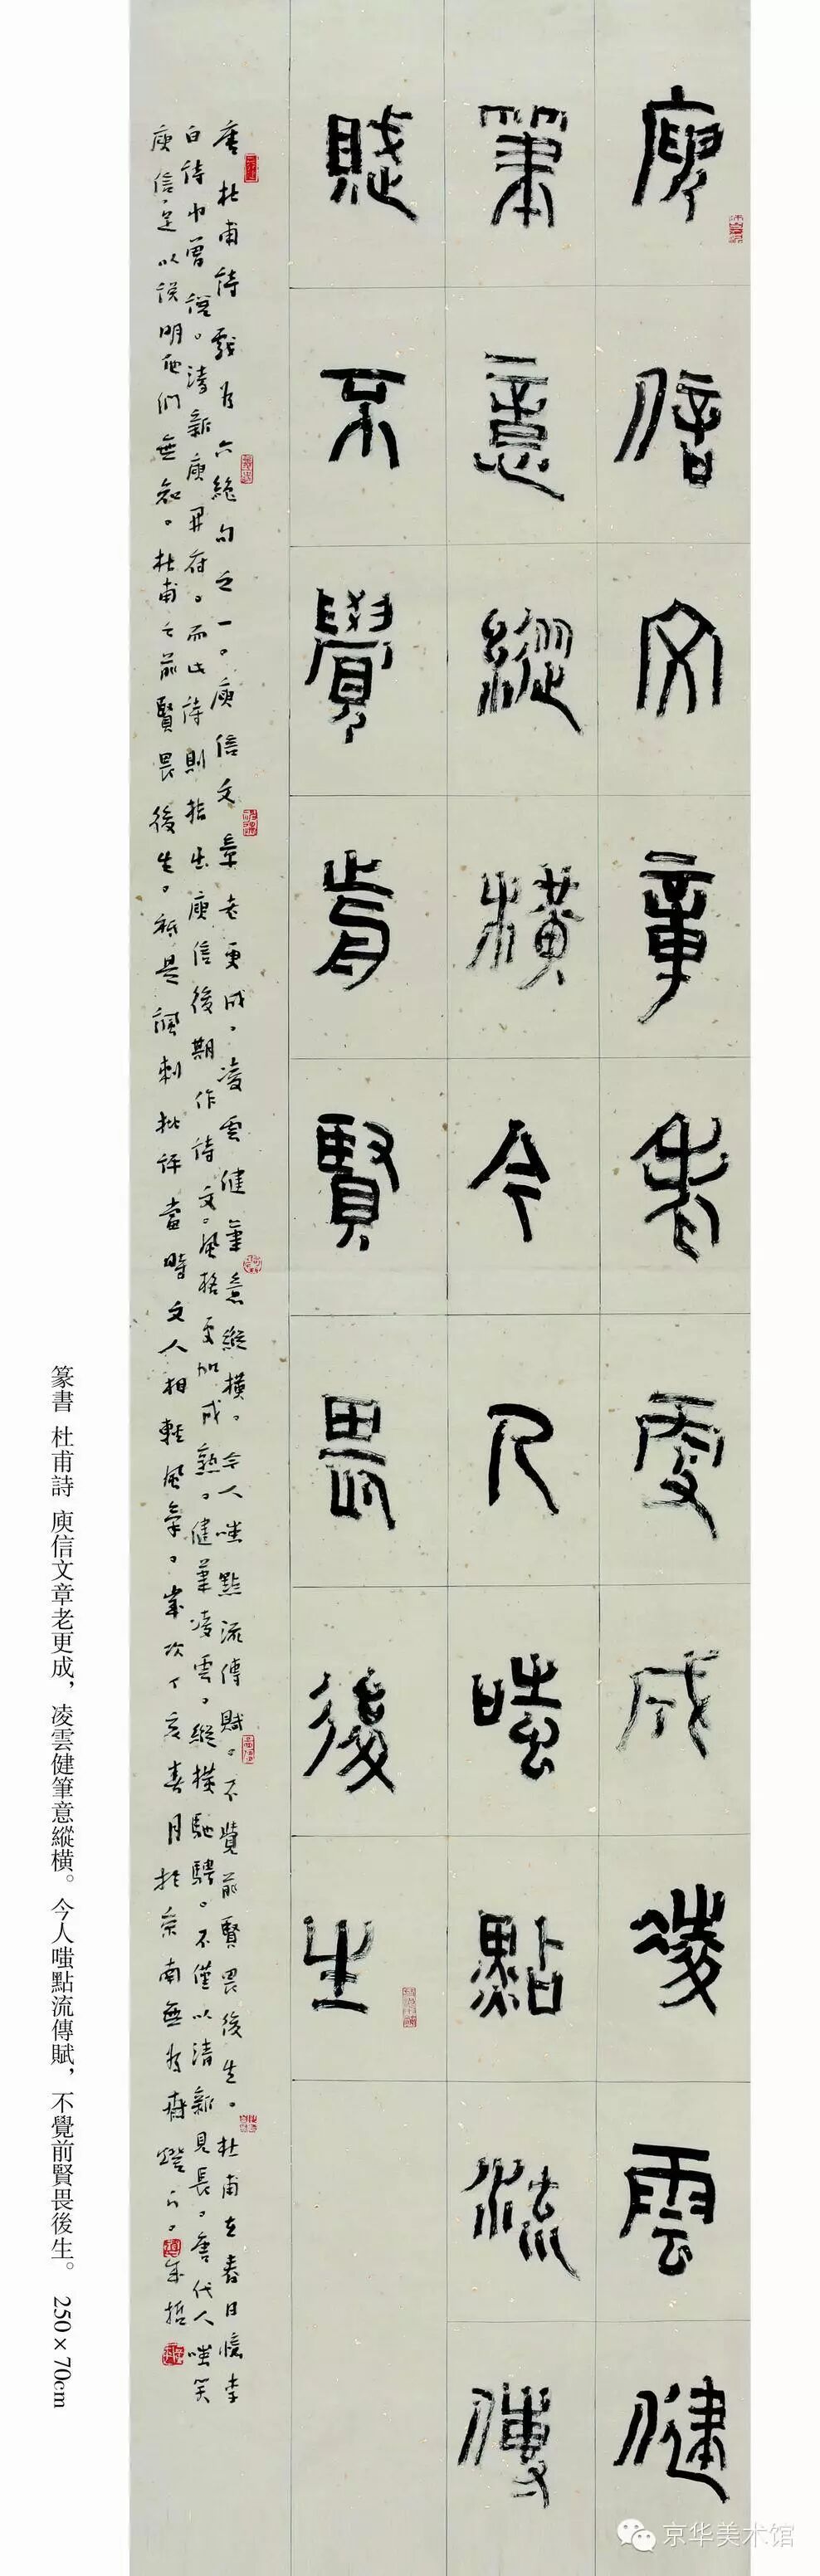 庾信文章老更成凌雲健
筆意縱橫今人嗤點流傳
賦不覺前賢畏後生
唐杜甫詩戲為六絕句之一。庾信文章老更成，凌雲健筆意縱橫。今人嗤點流傳賦。不覺前賢畏後生。杜甫在春日憶李
白詩中曾說。清新庾開府。而此詩則指出庾信後期作詩文。風格更加成熟。健筆凌雲。縱橫馳騁。不僅以清新見長。唐代人嗤笑
庾信，足以說明他們無知。杜甫之前賢畏後生。祇是諷刺批評當時文人相輕風氣。歲次丁亥春月於京南無為齋燈下。年哲
篆書 杜甫詩 庾信文章老更成，凌雲健筆意縱橫。今人嗤點流傳賦，不覺前賢畏後生。 250×70cm
京华美术馆